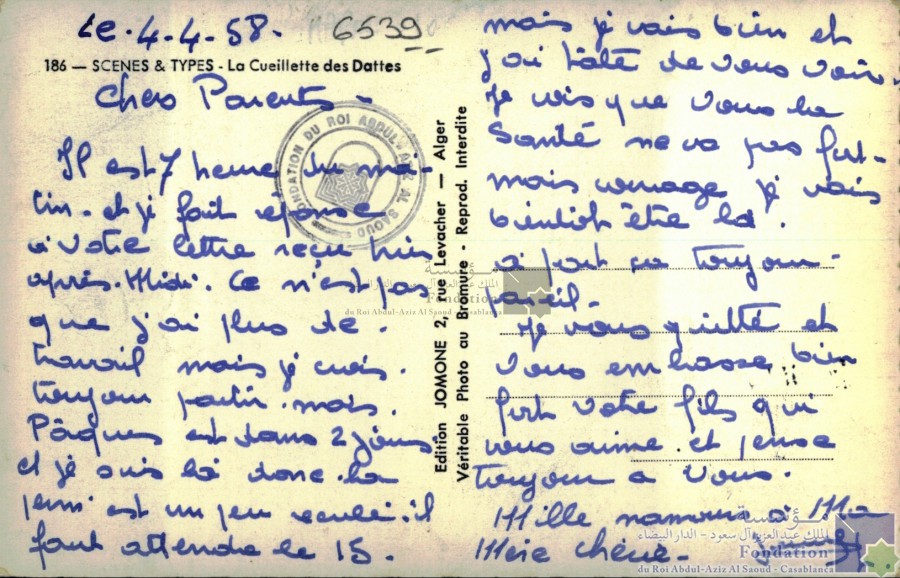 Le. 4-4-58.
6539
186 — SCENES & TYPES - La Cueillette des Dattes
Chers Parents -
Il est 7 heure du ma-
tin. et je fait réponse
a votre lettre reçu hier
après-Midi. Ce n'est pas
que j'ai plus de.
travail mais je crois.
toujour partir. mais.
Pâques est dans 2 jours
et je suis là donc la
permi est un peu reculé. il
faut attendre le 15.
FONDATION DU ROI ABDUL-AZIZ AL SAOUD
Edition JOMONE 2, rue Levacher — Alger
Véritable Photo au Bromure - Reprod. Interdite
mais je vais bien et
j'ai hâte de vous voir.
Je vois que vous la
Santé ne va pas fort -
mais courage je vais
bientôt être là.
a part ça toujour -
pareil -
Je vous quitte et
vous embrasse bien
fort votre fils qui
vous aime. et pense
toujour a vous.
Mille a Ma
Mère Chérie -
مؤسسة
الملك عبد العزيز آل سعود - الدار البيضاء
Fondation
du Roi Abdul-Aziz Al Saoud - Casablanca
مؤسسة
الملك عبد العزيز آل سعود - الدار البيضاء
Fondation
du Roi Abdul-Aziz Al Saoud - Casablanca